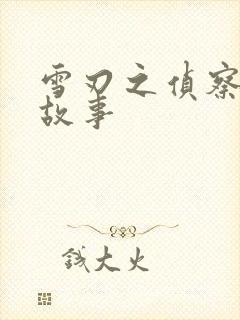 雪刃之偵察
故事
錢大火